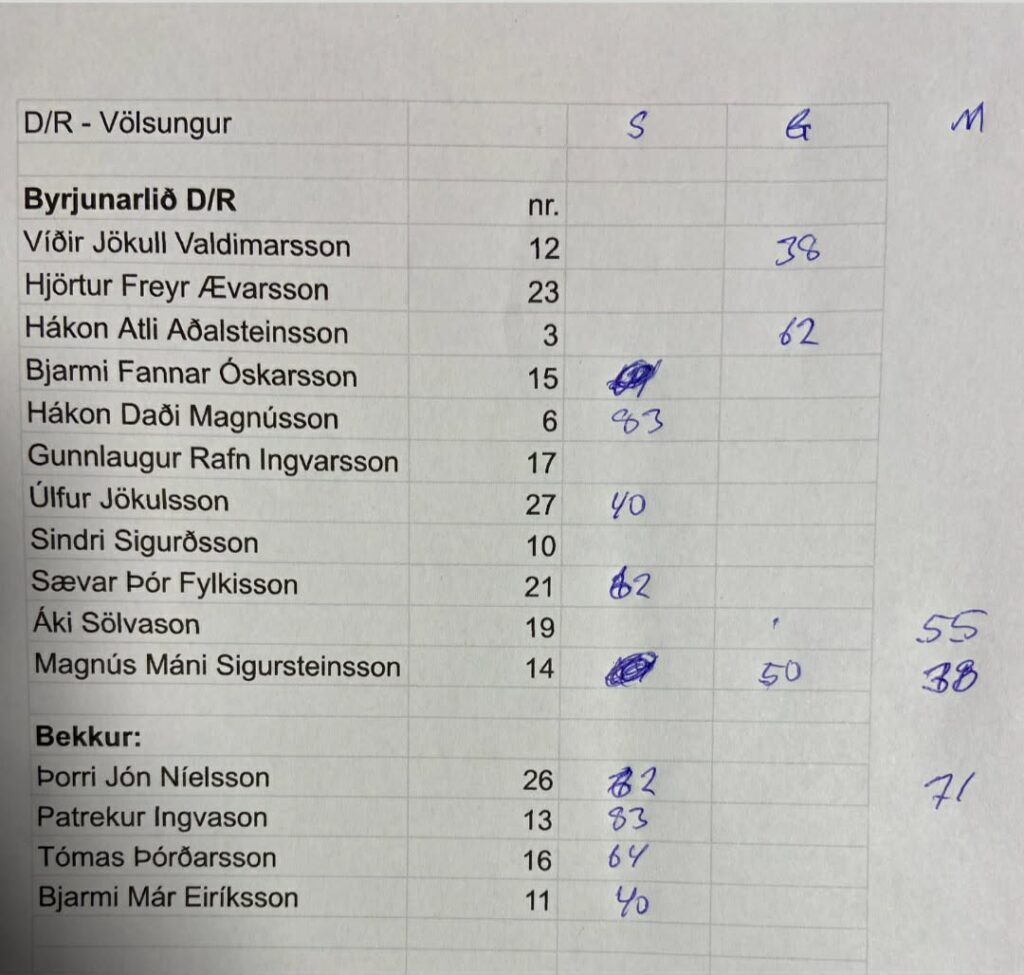 D/R - Völsungur S G M
Byrjunarlið D/R nr.
Víðir Jökull Valdimarsson 12 38
Hjörtur Freyr Ævarsson 23
Hákon Atli Aðalsteinsson 3 62
Bjarmi Fannar Óskarsson 15
Hákon Daði Magnússon 6 83
Gunnlaugur Rafn Ingvarsson 17
Úlfur Jökulsson 27 40
Sindri Sigurðsson 10
Sævar Þór Fylkisson 21 62
Áki Sölvason 19 55
Magnús Máni Sigursteinsson 14 50 38
Bekkur:
Þorri Jón Níelsson 26 62 71
Patrekur Ingvason 13 83
Tómas Þórðarsson 16 64
Bjarmi Már Eiríksson 11 40